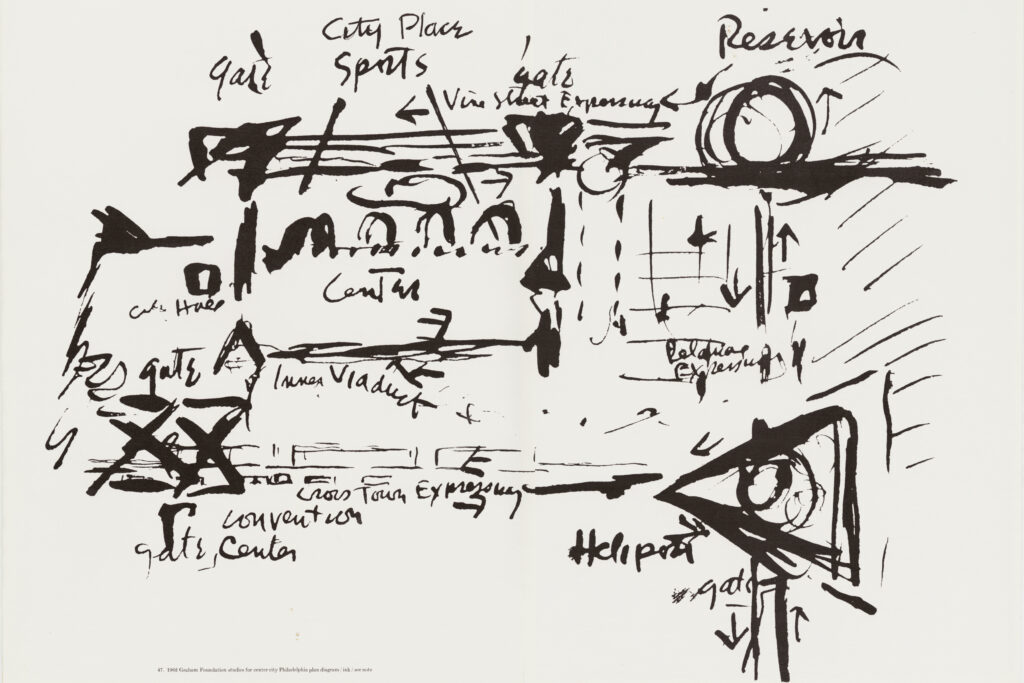 City Place
Sports
gate
gate
Reservoir
Vine Street Expressway
Center
gate
Inner Viaduct
Cross Town Expressway
Convention
Center
gate
Heliport
gate
Expressway
47. 1962 Graham Foundation studies for center city Philadelphia plan diagram / ink / see note